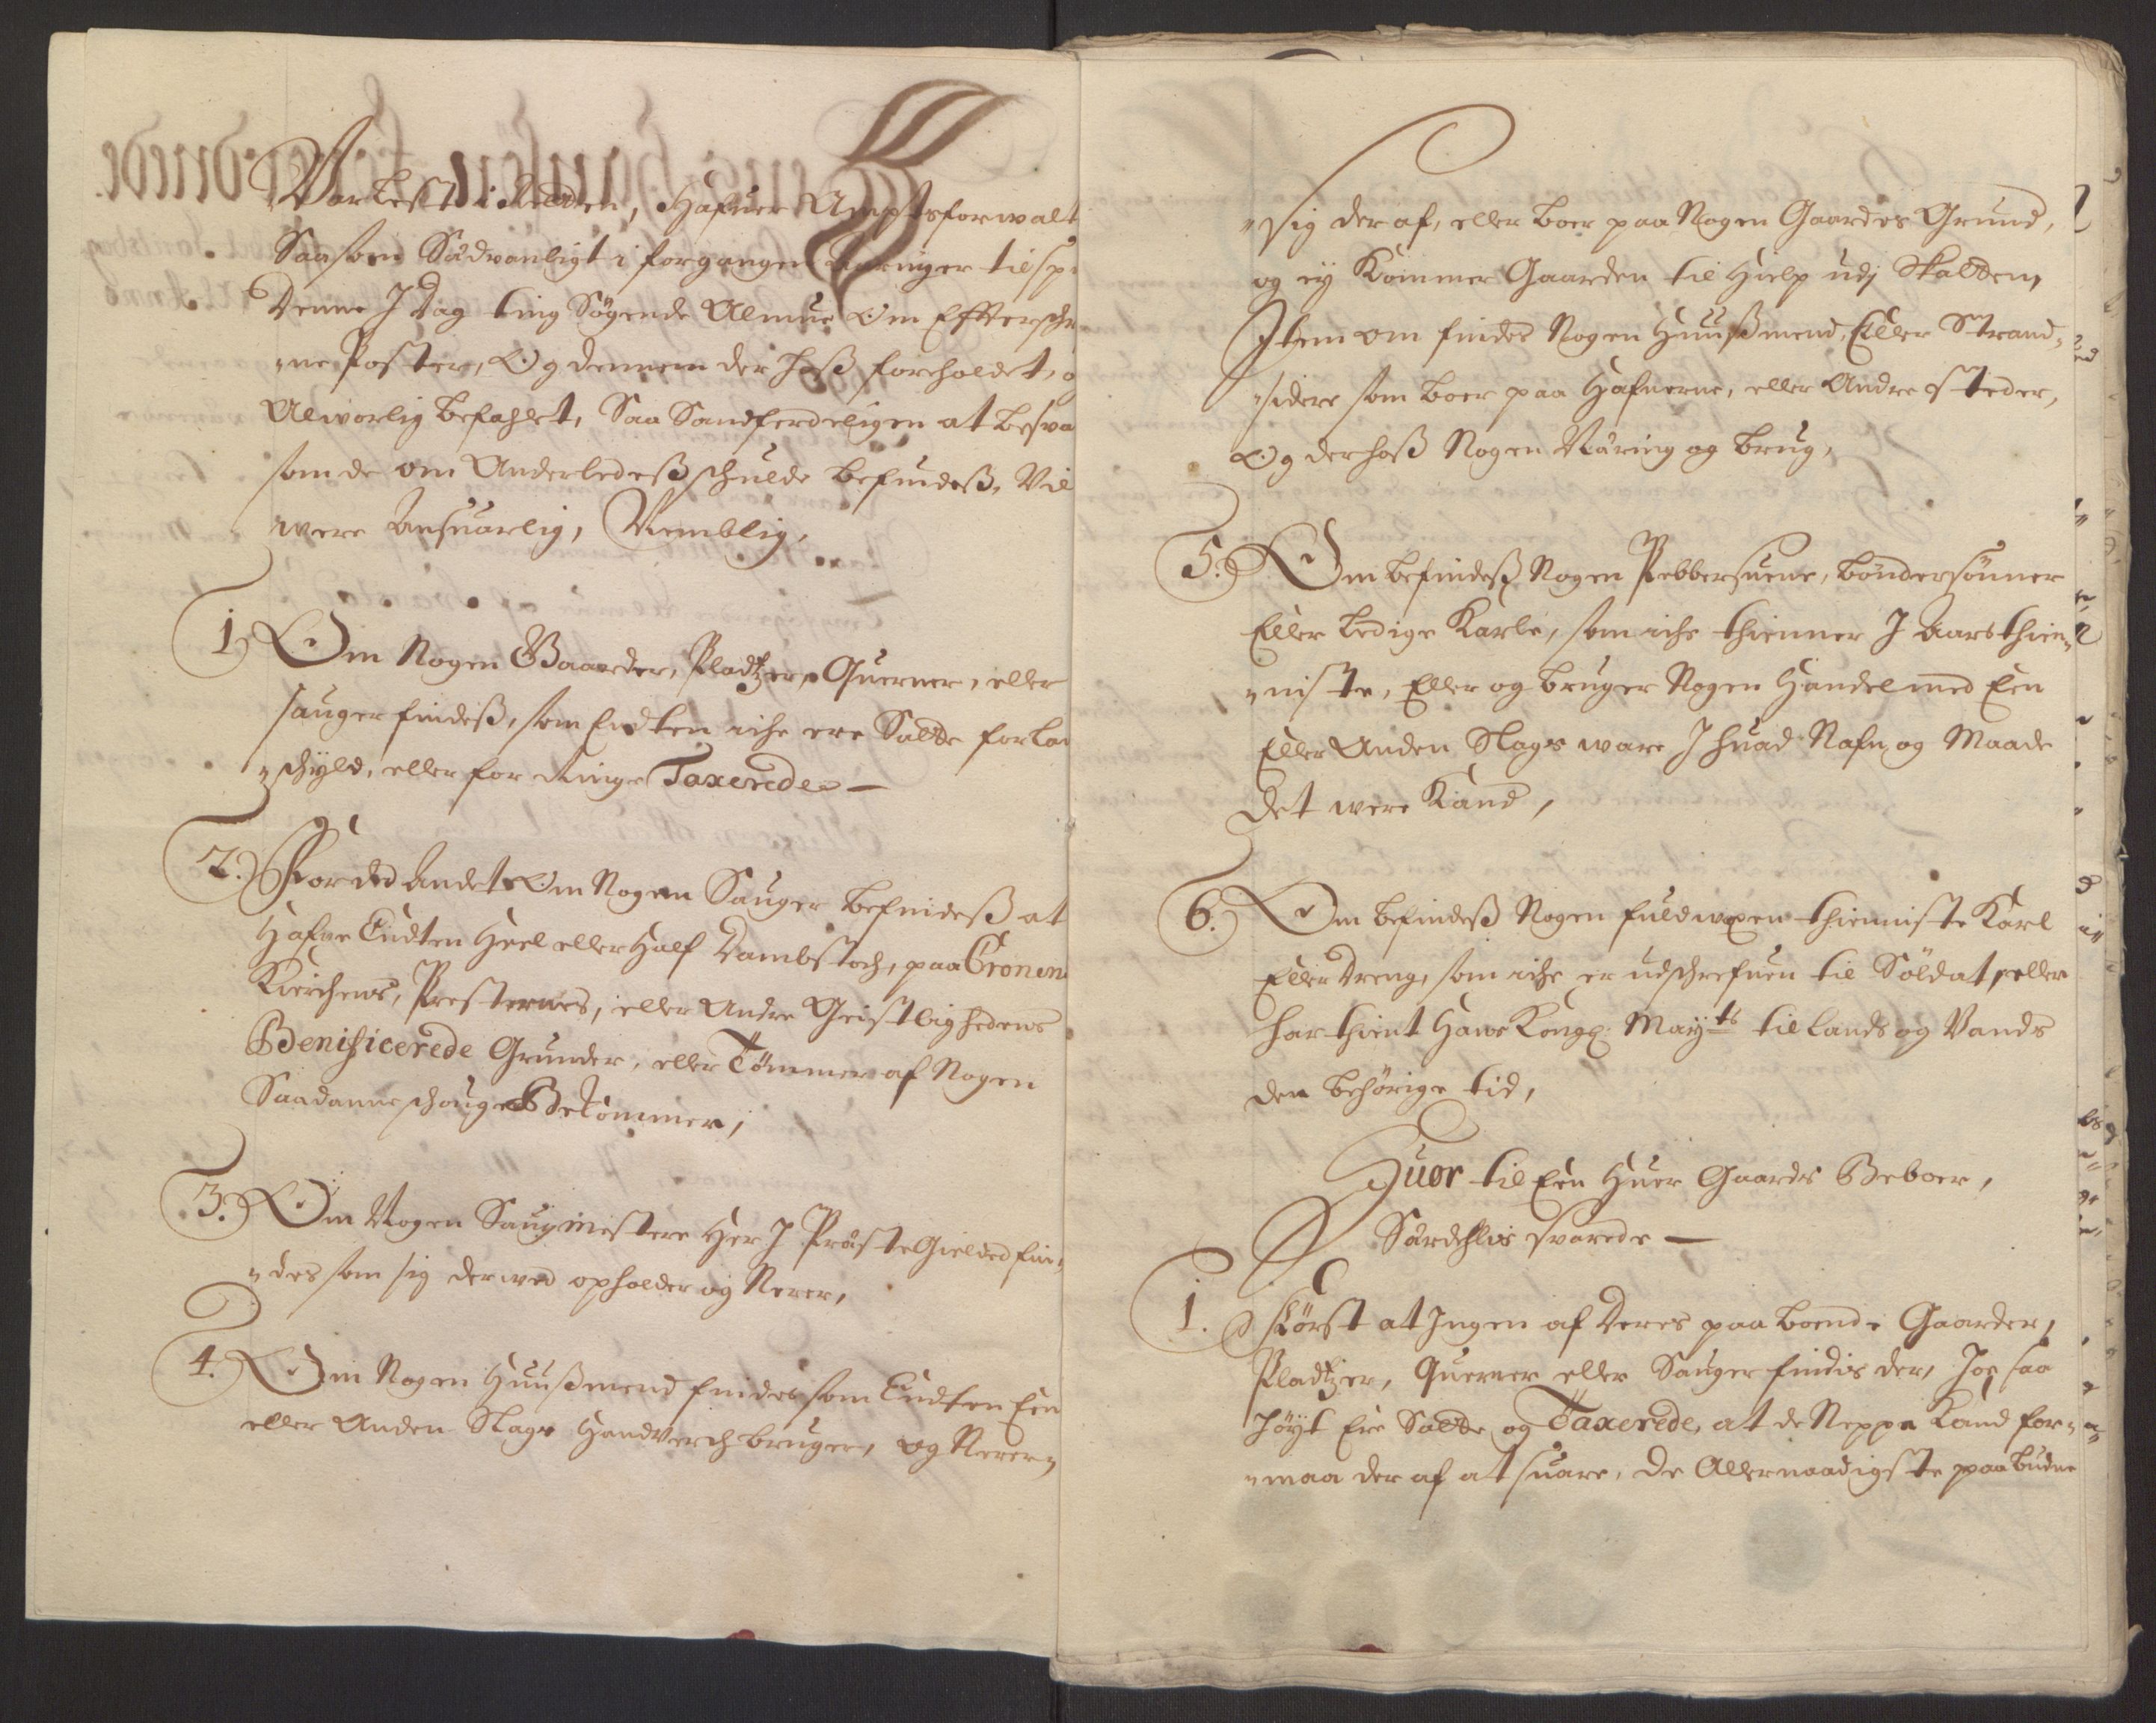 Var Lest i Retten, Hafuer Amptsforwalt
Saasom Sädvanligt i forgangen Aaringer tilsp
Denne J Dag ting Søgende Almue Om Effterschr
ne Poster, Og dennem der hoß foreholdet, o
Alvorlig befahlet, Saa Sandferdeligen at besva
som de om Anderledeß schulde befindeß, Vil
were Ansuarlig, Nemblig,
1. Om Nogen Gaarder, Pladtzer, Querner, eller
sauger findeß, som Endten iche ere Satte for la
schyld, eller for Ringe Taxerede
2. For det Andet Om Nogen Sauger befindeß at
Hafue Endten Heel eller Half Dambstoch, paa Cronen
Kierchens, Presternes, eller Andre Geistlighedens
Benificerede Grunder, eller Tømmer af Nogen
Saadanne schouge Bekommer,
3. Om Nogen Saugmestere Her J Præste Gieldet fin
des som sig derwed opholder og Nerer,
4. Om Nogen Huußmend findes som Endten Een
eller Anden Slags Handverch bruger, og Nerer
sig der af, eller boer paa Nogen Gaardes Grund,
og ey Kommer Gaarden til Hielp udj Skatten,
Item om findes Nogen Huußmend, Eller Strand
sidere som boer paa Hafnerne, eller Andre steder,
Og derhoß Nogen Näring og brug,
5. Om befindeß Nogen Pebbersuene, bøndersønner
Eller Ledige Karle, som iche thienner J Aars thien
niste, Eller og bruger Nogen Handel med Een
Eller Anden Slags ware J huad Nafn og Maade
det were Kand,
6. Om befindeß Nogen fuldwoxen thienniste Karl
Eller Dreng, som iche er udschrefuen til Soldat, eller
har thient Hans Kongl: Mayts til Lands og Vands
den behørige tid,
Huor til Een Huer Gaards Beboer,
Särdehlis svarede
1. Først at Ingen af Deres paa boende Gaarder,
Pladtzer, Querner eller Sauger findis der, Joe saa
høyt Ere Satte og Taxerede, at de Neppe Kand for
maa der af at suare, de Allernaadigste paabudne